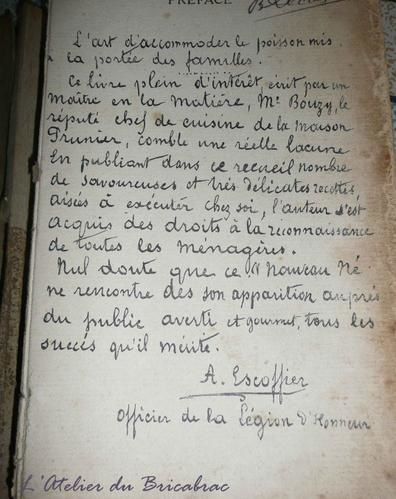 PRÉFACE
L'art d'accommoder le poisson mis
a la portée des familles.
Ce livre plein d'intérêt, écrit par un
maître en la matière, Mr Bouzy, le
réputé chef de cuisine de la maison
Prunier, comble une réelle lacune
En publiant dans ce recueil nombre
de savoureuses et très délicates recettes,
aisées à exécuter chez soi, l'auteur s'est
acquis des droits à la reconnaissance
de toutes les ménagères.
Nul doute que ce "Nouveau Né
ne rencontre dès son apparition auprès
du public averti et gourmet, tous les
succès qu'il mérite.
A. Escoffier
Officier de la Légion d'Honneur
L'Atelier du Bricabrac